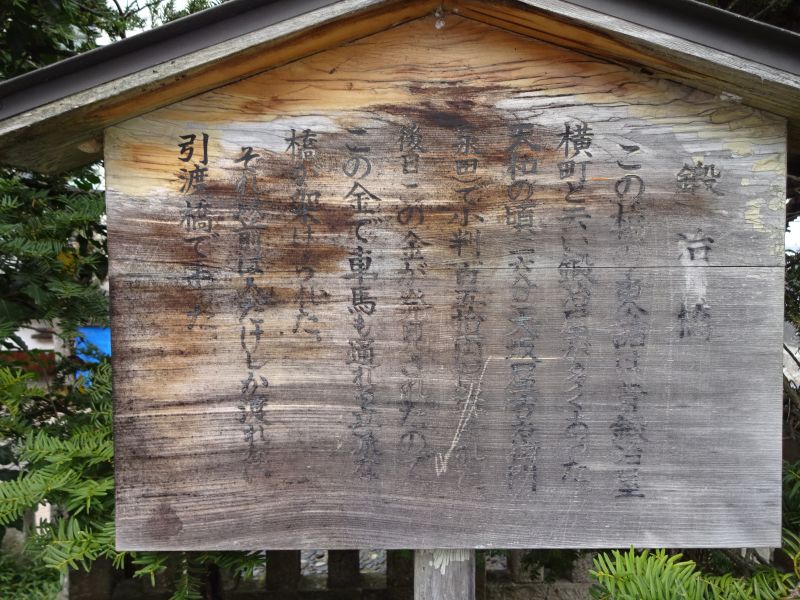 鍛冶橋
この橋の東詰は昔鍛冶屋
横町と云い鍛冶屋が多くあった
天和の頃 大阪屋吉右衛門
泉田で小判百五拾四
後日この金が発見されたので
この金で車馬も通れる立派な
橋が架けられた、
それ以前は人だけしか渡れない
引渡橋であった